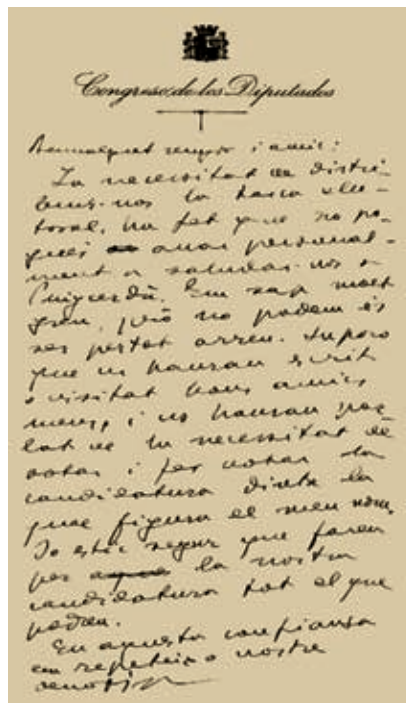 Congreso de los Diputados
Benvolgut senyor i amic:
La necessitat de distri-
buir-nos la tasca elec-
toral, ha fet que no po-
gués anar personal-
ment a saludar-vos a
Puigcerdà. Em sap molt
greu, però no podem és
ser pertot arreu. Suposo
que us hauran escrit
o visitat bons amics
meus, i us hauran par-
lat de la necessitat de
votar i fer votar la
candidatura dintre la
qual figura el meu nom.
Jo estic segur que fareu
per la nostra
candidatura tot el que
podeu.
En aquesta confiança
em repeteixo vostre